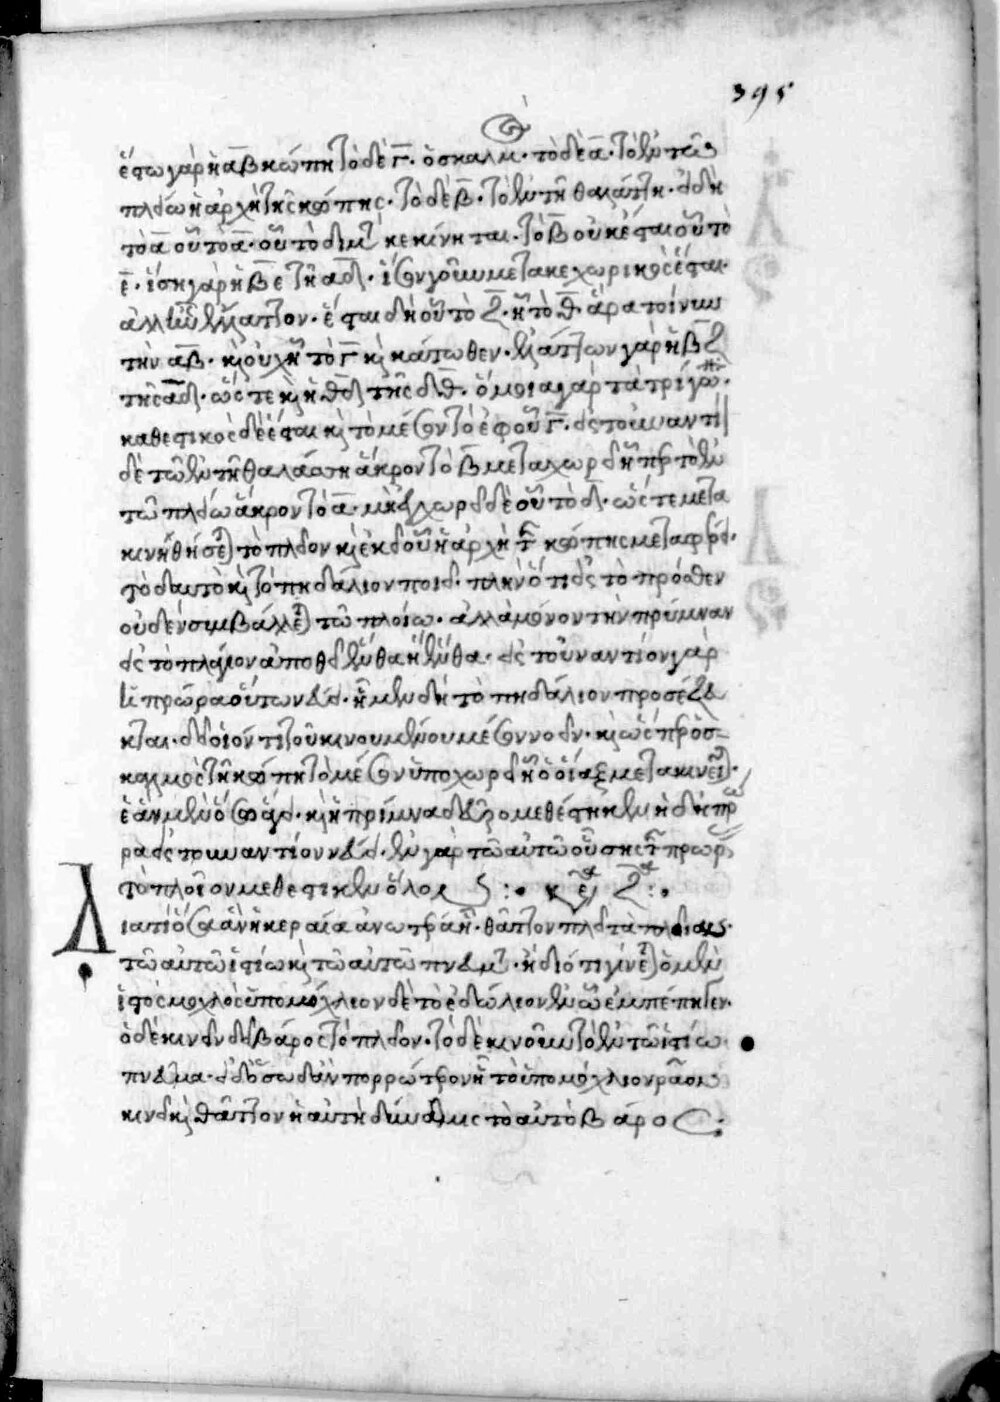 395
ἔστω γὰρ ἡ α̅β̅ κώπη τὸ δὲ γ̅· ὁ σκαλμ· τὸ δὲ α̅· τὸ ἐν τῶ
πλοίω ἡ ἀρχὴ τῆς κώπης· τὸ δὲ β̅· τὸ ἐν τῆ θαλάττη· εἰ δὴ
τὸ α̅ οὗ τὸ δ̅· οὗ τὸ δ̅ μετακεκίνηται· τὸ β̅ οὐκ ἔσται οὗ τὸ
ε̅· ἴση γὰρ ἡ β̅ε̅ τῆ α̅δ̅· ἴσον γοῦν μετακεχωρικὸς ἔσται·
ἀλλ' ἦν ἔλαττον· ἔσται δὴ οὗ τὸ ζ̅· ἢ τὸ θ̅· ἄρα τοίνυν
τὴν α̅β̅· καὶ οὐχ ἧ τὸ γ̅ καὶ κάτωθεν· ἐλάττων γὰρ ἡ β̅ζ̅
τῆς α̅δ̅· ὥστε καὶ ἡ θ̅ζ̅ τῆς δ̅θ̅· ὅμοια γὰρ τὰ τρίγωνα·
καθεστικὸς δὲ ἔσται καὶ τὸ μέσον τὸ ἐφ' οὗ γ̅· εἰς τοὐναντίον
δὲ τῶ ἐν τῆ θαλάττη ἄκρον τὸ β̅ μεταχωρεῖ ἧπερ τὸ ἐν
τῶ πλοίω ἄκρον τὸ α̅· μὴ ἐχώρει δὲ οὗ τὸ δ̅· ὥστε μετα
κινηθήσεται τὸ πλοῖον καὶ ἐκεῖ οὗ ἡ ἀρχὴ τῆς κώπης μεταφέρεται·
τὸ δ' αὐτὸ καὶ τὸ πηδάλιον ποιεῖ· πλὴν ὅτι εἰς τὸ πρόσθεν
οὐδὲν συμβάλλεται τῶ πλοίω· ἀλλὰ μόνον τὴν πρύμναν
εἰς τὸ πλάγιον ἀπωθεῖ ἔνθα ἢ ἔνθα· εἰς τοὐναντίον γὰρ
ἡ πρώρα οὕτω νεύει· ἧ μὲν δὴ τὸ πηδάλιον προσέζευ
κται· δεῖ οἷόν τι τοῦ κινουμένου μέσον νοεῖν· καὶ ὥσπερ ὁ σ
καλμὸς τῆ κώπη τὸ μέσον ὑποχωρεῖ ἧ ὁ οἴαξ μετακινεῖται·
ἐὰν μὲν εἴσω ἄγει· καὶ ἡ πρύμνα δεῦρο μεθέστηκεν ἡ δὲ πρώ
ρα εἰς τοὐναντίον νεύει· ἐν γὰρ τῶ αὐτῶ οὔσης τῆς πρώρας
τὸ πλοῖον μεθέστηκεν ὅλον :· κεφ ζ̅ :·
Διατί ὅσω ἂν ἡ κεραία ἀνωτέρα ἦ· θᾶττον πλεῖ τὰ πλοῖα
τῶ αὐτῶ ἱστίω καὶ τῶ αὐτῶ πνεύματι· ἢ διότι γίνεται ὁ μὲν
ἱστὸς μοχλὸς ὑπομόχλιον δὲ τὸ ἑδώλιον ἐν ὧ ἐμπέπηγεν·
ὃ δὲ κινεῖν δεῖ βάρος τὸ πλοῖον· τὸ δὲ κινοῦν τὸ ἐν τῶ ἱστίω
πνεῦμα· εἰ δ' ὅσω ἂν πορρώτερον ἦ τὸ ὑπομόχλιον ρᾶον
κινεῖ καὶ θᾶττον ἡ αὐτὴ δύναμις τὸ αὐτὸ βάρος: